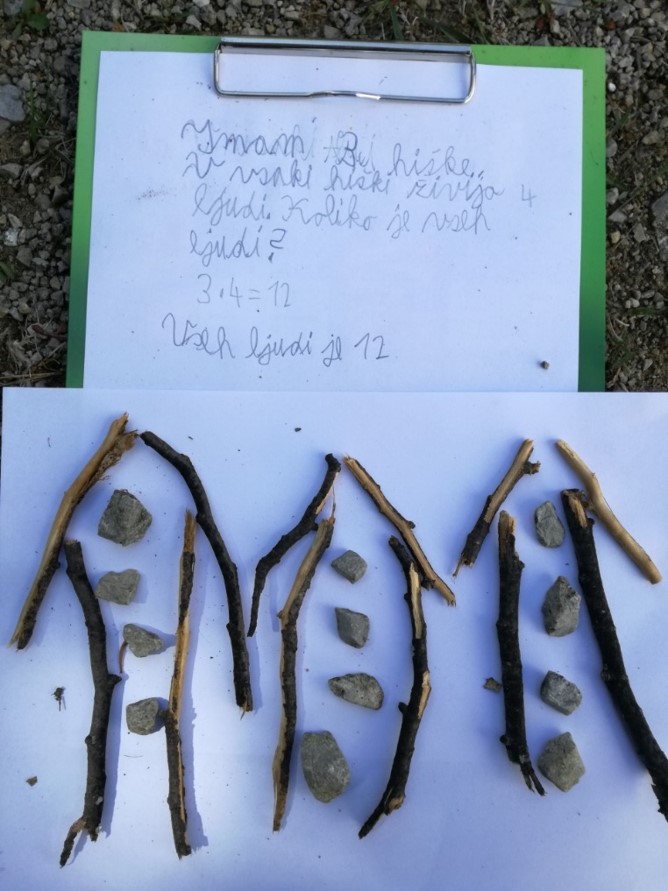 Imam hiške.
V vsaki hiški živijo 4
ljudi. Koliko je vseh
ljudi?
3·4=12
Vseh ljudi je 12